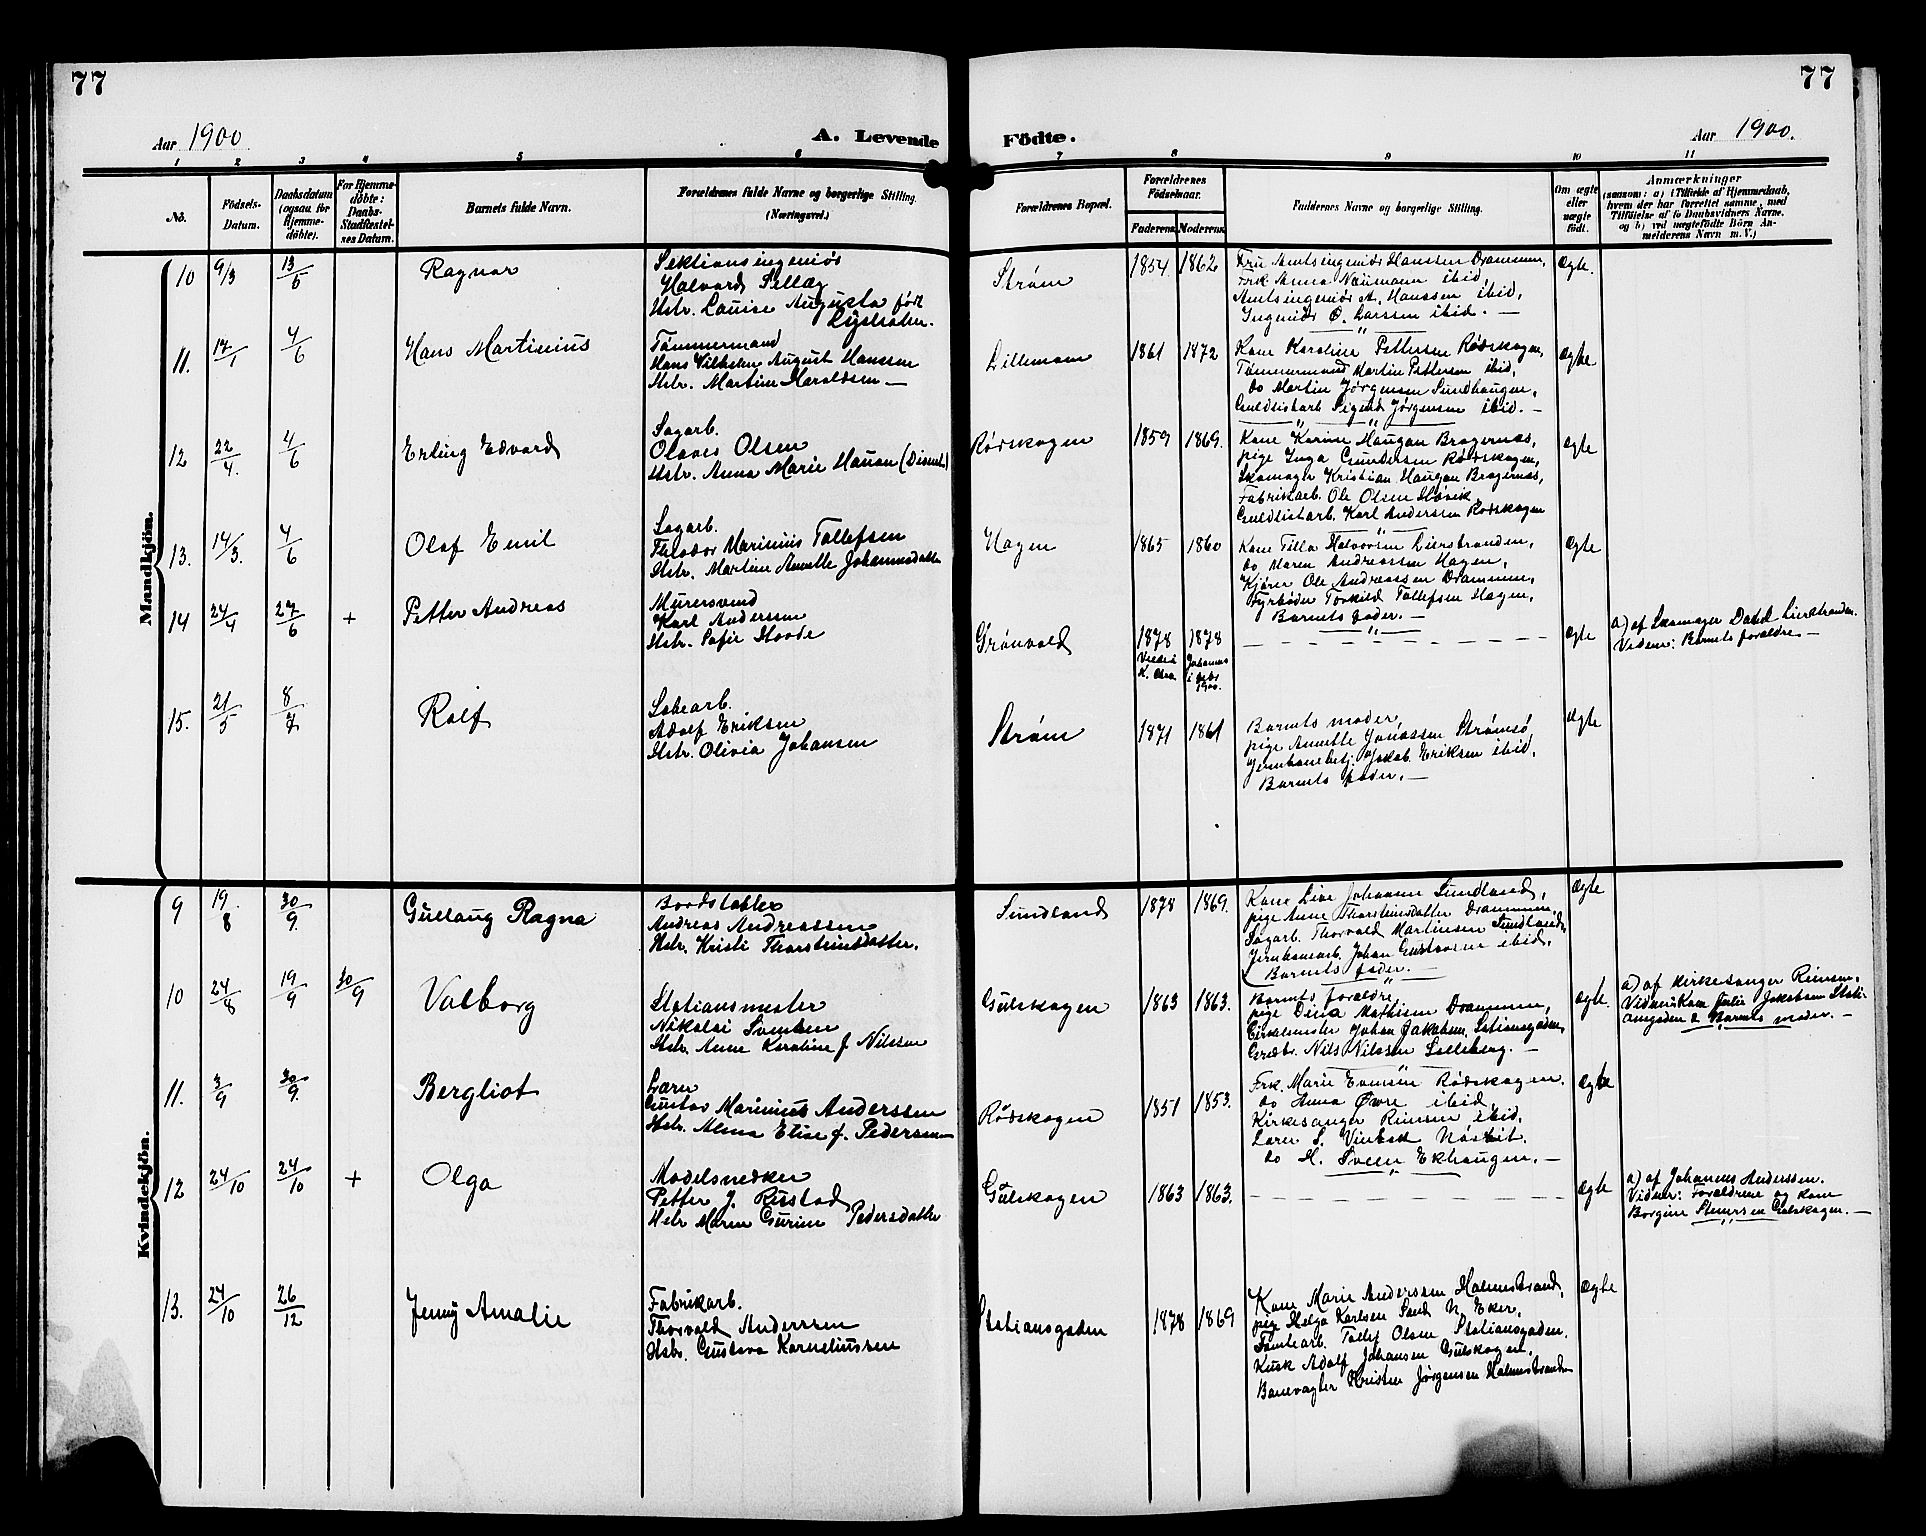 77
77
Aar 1900
A. Levende
Födte.
Aar 1900.
1 2 3 4 5 6 7 8 9 10 11
No.
Födsels-
Datum.
Daabsdatum
(ogsaa for
Hjemme-
döbte).
For Hjemme-
döbte:
Daabs-
Stadfæstel-
ses Datum.
Barnets fulde Navn.
Forældrenes fulde Navne og borgerlige Stilling.
(Næringsvei.)
Forældrenes Bopæl.
Forældrenes
Födselsaar.
Faderens. Moderens.
Faddernes Navne og borgerlige Stilling.
Om ægte
eller
uægte
födt.
Anmærkninger
(saasom: a) i Tilfælde af Hjemmedaab,
hvem der har forrettet samme, med
Tilföielse af to Daabsvidners Navne,
og b) ved uægtefödte Börn An-
melderens Navn m. V.)
Mandkjön.
10 9/3 13/5 Ragnar
Sektionsingeniør
Halvard Sellæg
Hstr. Louise Augusta født
Lysholm.
Strøm 1854 1862
Fru Amtsingeniør Hanssen Drammen,
Frk. Anna Naumann ibid,
Amtsingeniør A. Hanssen ibid,
Ingeniør O. Larssen ibid. —
Ægte.
11. 14/1 4/6 Hans Martinius
Tømmermand
Hans Vilhelm August Hanssen
Hstr. Martine Haraldsen —
Lillemoen 1861 1872
Kone Karoline Pettersen Rødskogen,
Tømmermand Martin Pettersen ibid,
do Martin Jørgensen Sundhaugen,
Guldlistarb. Sigurd Jørgensen ibid. —
Ægte
12 22/4. 4/6 Erling Edvard
Sagarb.
Olaves Olsen
Hstr. Anna Marie Hauan (Dissent.)
Rødskogen 1859 1869.
Kone Karine Haugan Bragernæs,
pige Inga Gundersen Rødskogen,
Skomager Kristian Haugan Bragernæs,
Fabrikarb. Ole Olsen Høvik,
Guldlistarb. Karl Andersen Rødskogen
Ægte
13. 14/3. 4/6 Olaf Emil
Sagarb.
Theodor Marinius Tollefsen
Hstr. Martine Annette Johannesdatter
Hagen 1865 1860
Kone Tilla Halvorsen Lierstranden,
do Maren Andreassen Hagen,
Kjører Ole Andreassen Drammen,
Fyrbøder Torkild Tollefsen Hagen,
Barnets fader. —
Ægte
14 24/4 27/6 + Petter Andreas
Murersvend
Karl Anderssen
Hstr. Sofie Hovde
Grønvold 1878 1878
Johannes
- - - - - - - - -
Ægte
a) af Skomager Dahl Lierstranden.
Vidner: Barnets forældre —
15. 21/5 8/7 Rolf
Adolf Eriksen
Hstr. Olivia Johansen
Strøm 1871 1861
Barnets moder,
pige Annette Jonassen Strømsø
Jernbanebetj. Jakob Eriksen ibid,
Barnets fader. —
Ægte
Kvindekjön.
9 19/8 30/9. Gudlaug Ragna
Bordstabler
Andreas Andreassen
Hstr. Kristi Thorsteinsdatter.
Sundland 1878 1869.
Kone Lise Johansen Sundland,
pige Anne Thorsteinsdatter Drammen,
Sagarb. Thorvald Martinsen Sundland,
Jernbanearb. Johan Gustavsen ibid,
Barnets fader. —
Ægte
10 24/8 19/9 30/9 Valborg
Stationsmester
Nikolai Svendsen
Hstr. Anne Karoline f. Nilssen
Gulskogen 1863 1863.
Barnets forældre,
pige Dina Mathisen Drammen,
Cirkelmester Johan Jakobsen, Stationsgaden,
Grdbr. Nils Nilssen Solleberg. —
Ægte.
a) af kirkesanger Riensen.
Vidner: Kone Julie Jakobsen Stati-
onsgaden & Barnets moder. —
11. 3/9 30/9. Bergliot
Lærer
Gustav Marinius Anderssen
Hstr. Alma Elise f. Pedersen
Rødskogen 1851 1853.
Frk. Marie Evensen Rødskogen.
do Anna Øvre ibid,
Kirkesanger Riensen ibid,
do H. Sveen Ekhaugen. —
Ægte
12 24/10 24/10 + Olga
Modelsnedker
Petter J. Rustad
Hstr Maren Gurine Pedersdatter
Gulskogen 1863 1863.
- - - - - - - - -
Ægte
a) af Johannes Anderssen.
Vidner: Forældrene og kone
Borgine Stenersen Gulskogen. —
13. 24/10 26/12 Jenny Amalie
Fabrikarb.
Thorvald Anderssen
Hstr. Gustava Korneliussen
Stationsgaden 1878 1869
Kone Marie Anderssen Holmestrand,
pige Helga Karlsen Sand N. Eker,
Tomtearb. Tollef Olsen Stationsgaden.
Kusk Adolf Johansen Gulskogen,
Banevogter Kristen Jørgensen Holmestrand
Ægte